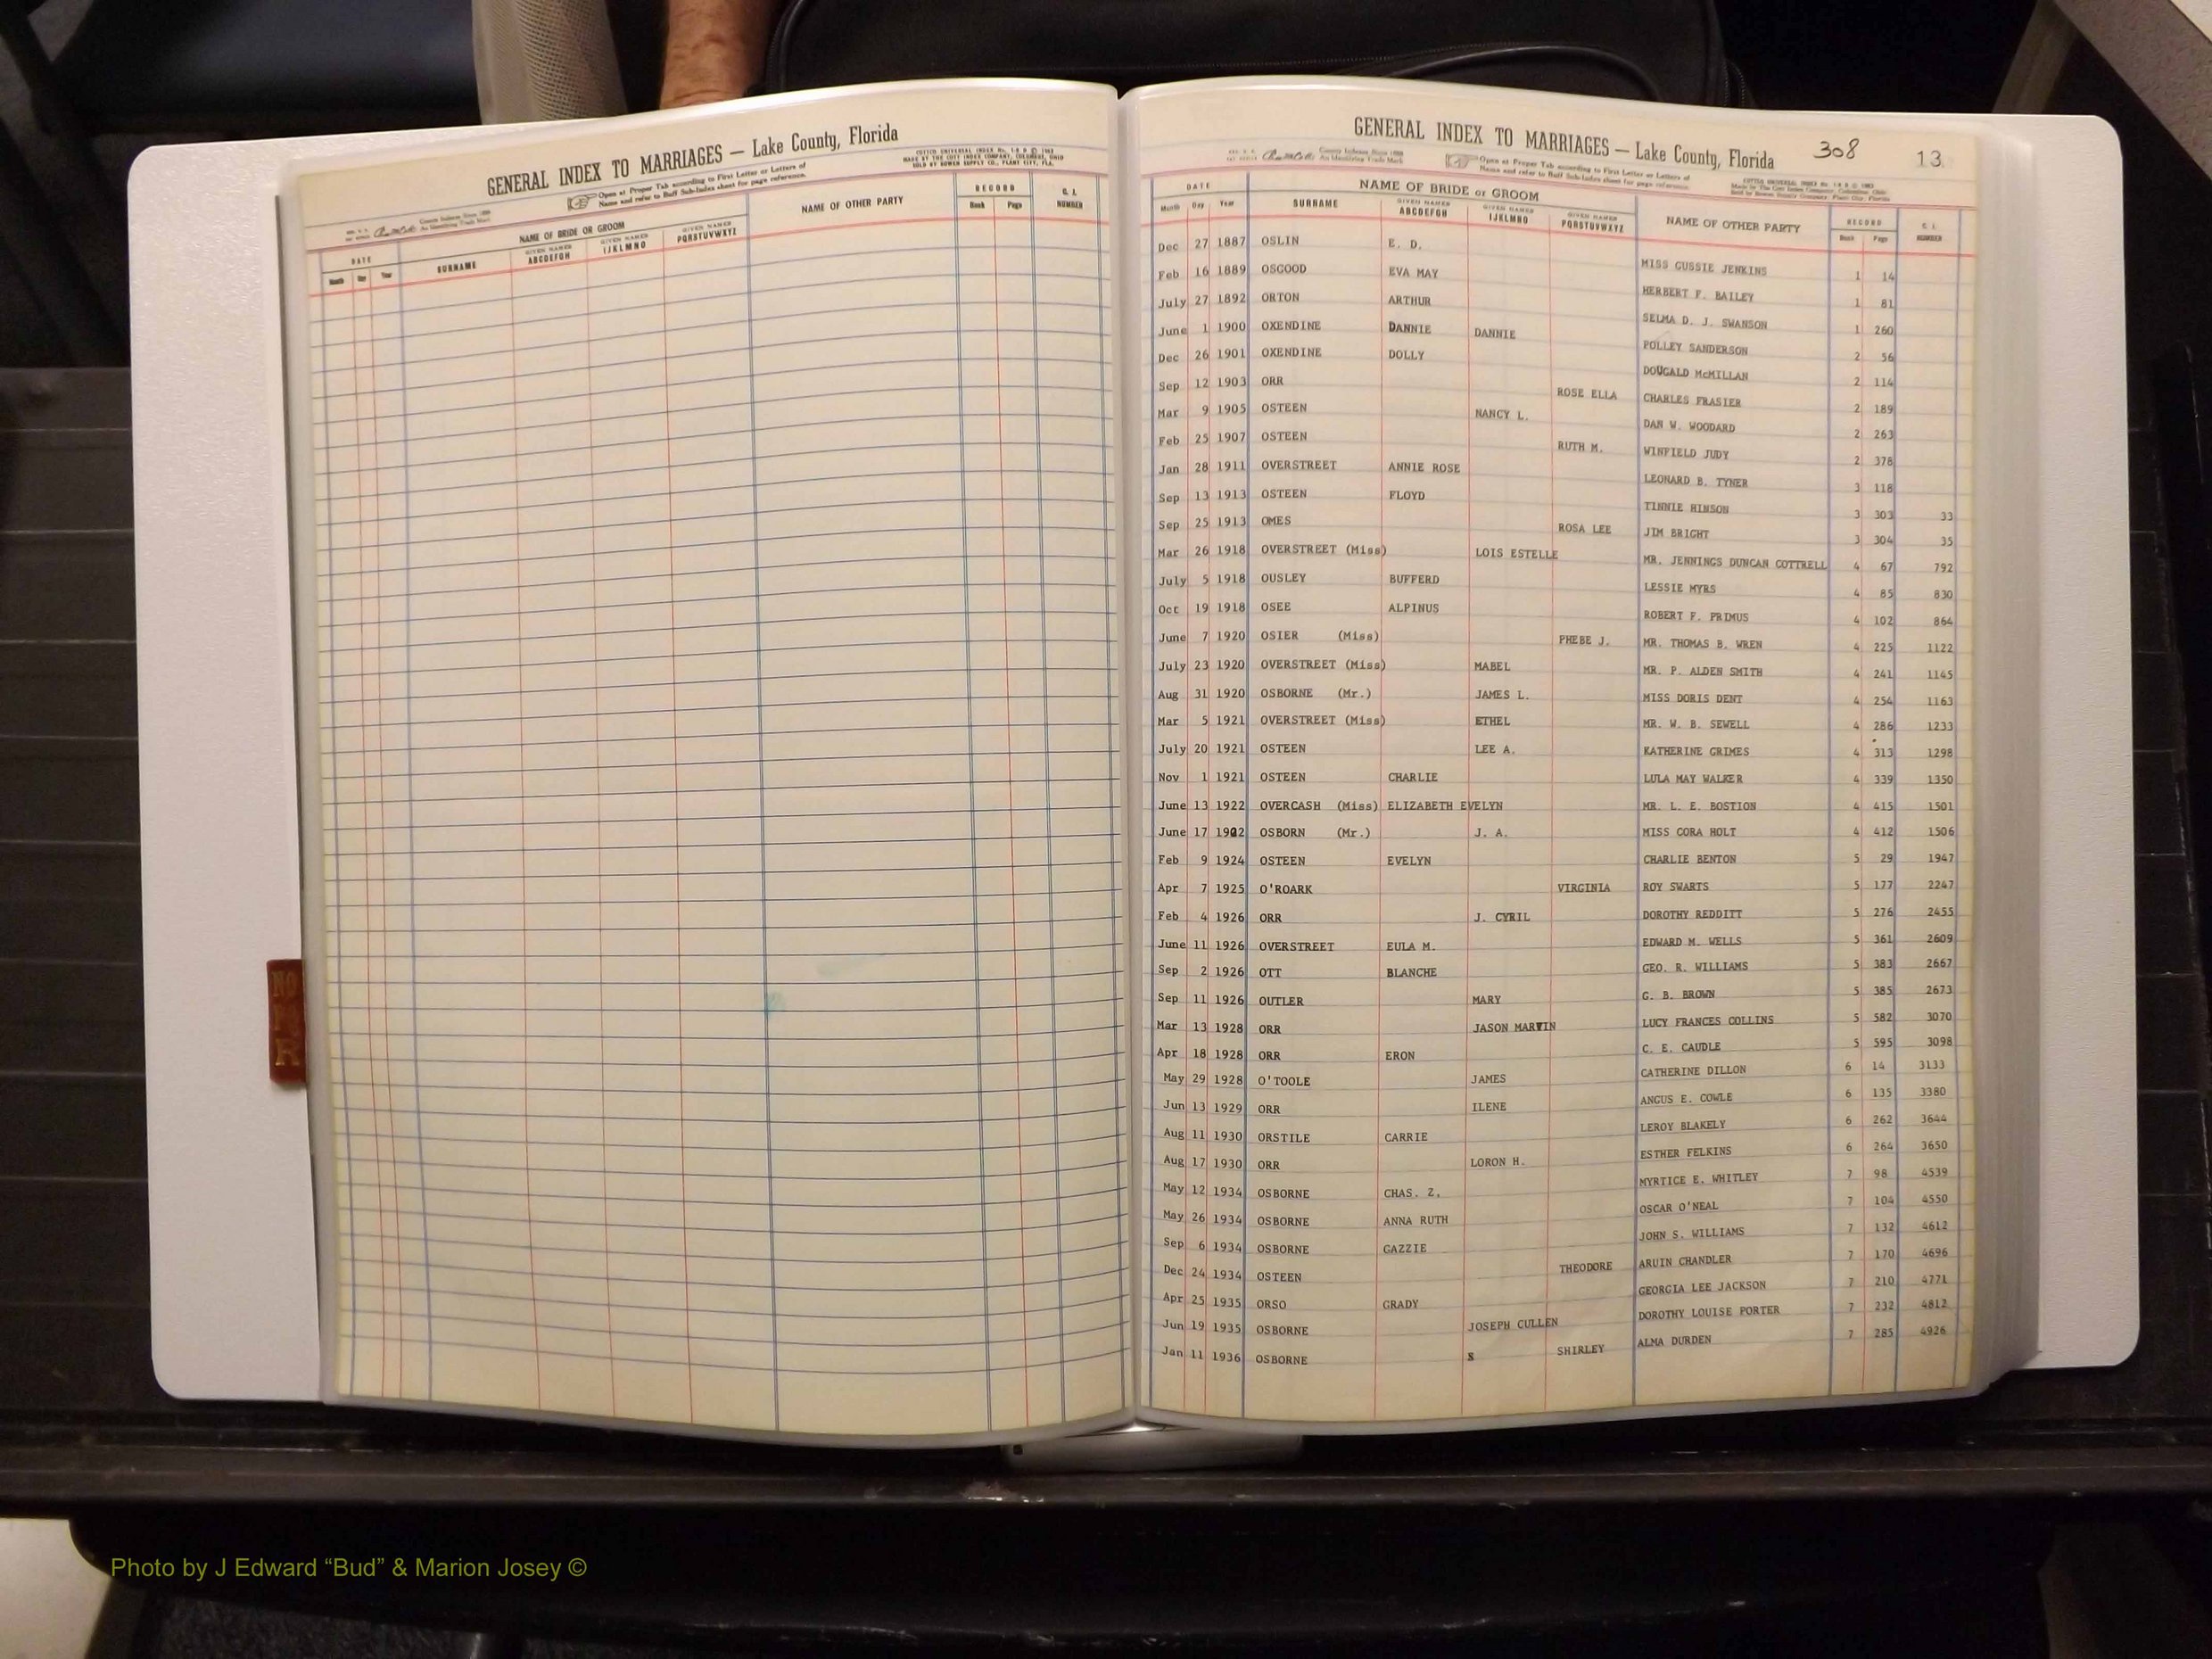 GENERAL INDEX TO MARRIAGES — Lake County, Florida
Open at Proper Tab according to First Letter or Letters of
Name and refer to Buff Sub-Index sheet for page reference.
DATE NAME OF BRIDE OR GROOM NAME OF OTHER PARTY RECORD C. I. NUMBER
Month Day Year SURNAME GIVEN NAMES ABCDEFGH GIVEN NAMES IJKLMNO GIVEN NAMES PQRSTUVWXYZ Book Page
GENERAL INDEX TO MARRIAGES — Lake County, Florida 308 13
Open at Proper Tab according to First Letter or Letters of
Name and refer to Buff Sub-Index sheet for page reference.
DATE NAME OF BRIDE or GROOM NAME OF OTHER PARTY RECORD C. I. NUMBER
Month Day Year SURNAME GIVEN NAMES ABCDEFGH GIVEN NAMES IJKLMNO GIVEN NAMES PQRSTUVWXYZ Book Page
Dec 27 1887 OSLIN E. D. MISS GUSSIE JENKINS 1 14
Feb 16 1889 OSGOOD EVA MAY HERBERT F. BAILEY 1 81
July 27 1892 ORTON ARTHUR SELMA D. J. SWANSON 1 260
June 1 1900 OXENDINE DANNIE DANNIE POLLEY SANDERSON 2 56
Dec 26 1901 OXENDINE DOLLY DOUGALD McMILLAN 2 114
Sep 12 1903 ORR ROSE ELLA CHARLES FRASIER 2 189
Mar 9 1905 OSTEEN NANCY L. DAN W. WOODARD 2 263
Feb 25 1907 OSTEEN RUTH M. WINFIELD JUDY 2 378
Jan 28 1911 OVERSTREET ANNIE ROSE LEONARD B. TYNER 3 118
Sep 13 1913 OSTEEN FLOYD TINNIE HINSON 3 303 33
Sep 25 1913 OMES ROSA LEE JIM BRIGHT 3 304 35
Mar 26 1918 OVERSTREET (Miss) LOIS ESTELLE MR. JENNINGS DUNCAN COTTRELL 4 67 792
July 5 1918 OUSLEY BUFFERD LESSIE MYRS 4 85 830
Oct 19 1918 OSEE ALPINUS ROBERT F. PRIMUS 4 102 864
June 7 1920 OSIER (Miss) PHEBE J. MR. THOMAS B. WREN 4 225 1122
July 23 1920 OVERSTREET (Miss) MABEL MR. P. ALDEN SMITH 4 241 1145
Aug 31 1920 OSBORNE (Mr.) JAMES L. MISS DORIS DENT 4 254 1163
Mar 5 1921 OVERSTREET (Miss) ETHEL MR. W. B. SEWELL 4 286 1233
July 20 1921 OSTEEN LEE A. KATHERINE GRIMES 4 313 1298
Nov 1 1921 OSTEEN CHARLIE LULA MAY WALKER 4 339 1350
June 13 1922 OVERCASH (Miss) ELIZABETH EVELYN MR. L. E. BOSTION 4 415 1501
June 17 1922 OSBORN (Mr.) J. A. MISS CORA HOLT 4 412 1506
Feb 9 1924 OSTEEN EVELYN CHARLIE BENTON 5 29 1947
Apr 7 1925 O'ROARK VIRGINIA ROY SWARTS 5 177 2247
Feb 4 1926 ORR J. CYRIL DOROTHY REDDITT 5 276 2455
June 11 1926 OVERSTREET EULA M. EDWARD M. WELLS 5 361 2609
Sep 2 1926 OTT BLANCHE GEO. R. WILLIAMS 5 383 2667
Sep 11 1926 OUTLER MARY G. B. BROWN 5 385 2673
Mar 13 1928 ORR JASON MARTIN LUCY FRANCES COLLINS 5 582 3070
Apr 18 1928 ORR ERON C. E. CAUDLE 5 595 3098
May 29 1928 O'TOOLE JAMES CATHERINE DILLON 6 14 3133
Jun 13 1929 ORR ILENE ANGUS E. COWLE 6 135 3380
Aug 11 1930 ORSTILE CARRIE LEROY BLAKELY 6 262 3644
Aug 17 1930 ORR LORON H. ESTHER FELKINS 6 264 3650
May 12 1934 OSBORNE CHAS. Z. MYRTICE E. WHITLEY 7 98 4539
May 26 1934 OSBORNE ANNA RUTH OSCAR O'NEAL 7 104 4550
Sep 6 1934 OSBORNE GAZZIE JOHN S. WILLIAMS 7 132 4612
Dec 24 1934 OSTEEN THEODORE ARUIN CHANDLER 7 170 4696
Apr 25 1935 ORSO GRADY GEORGIA LEE JACKSON 7 210 4771
Jun 19 1935 OSBORNE JOSEPH CULLEN DOROTHY LOUISE PORTER 7 232 4812
Jan 11 1936 OSBORNE S SHIRLEY ALMA DURDEN 7 285 4926
Photo by J Edward “Bud” & Marion Josey ©